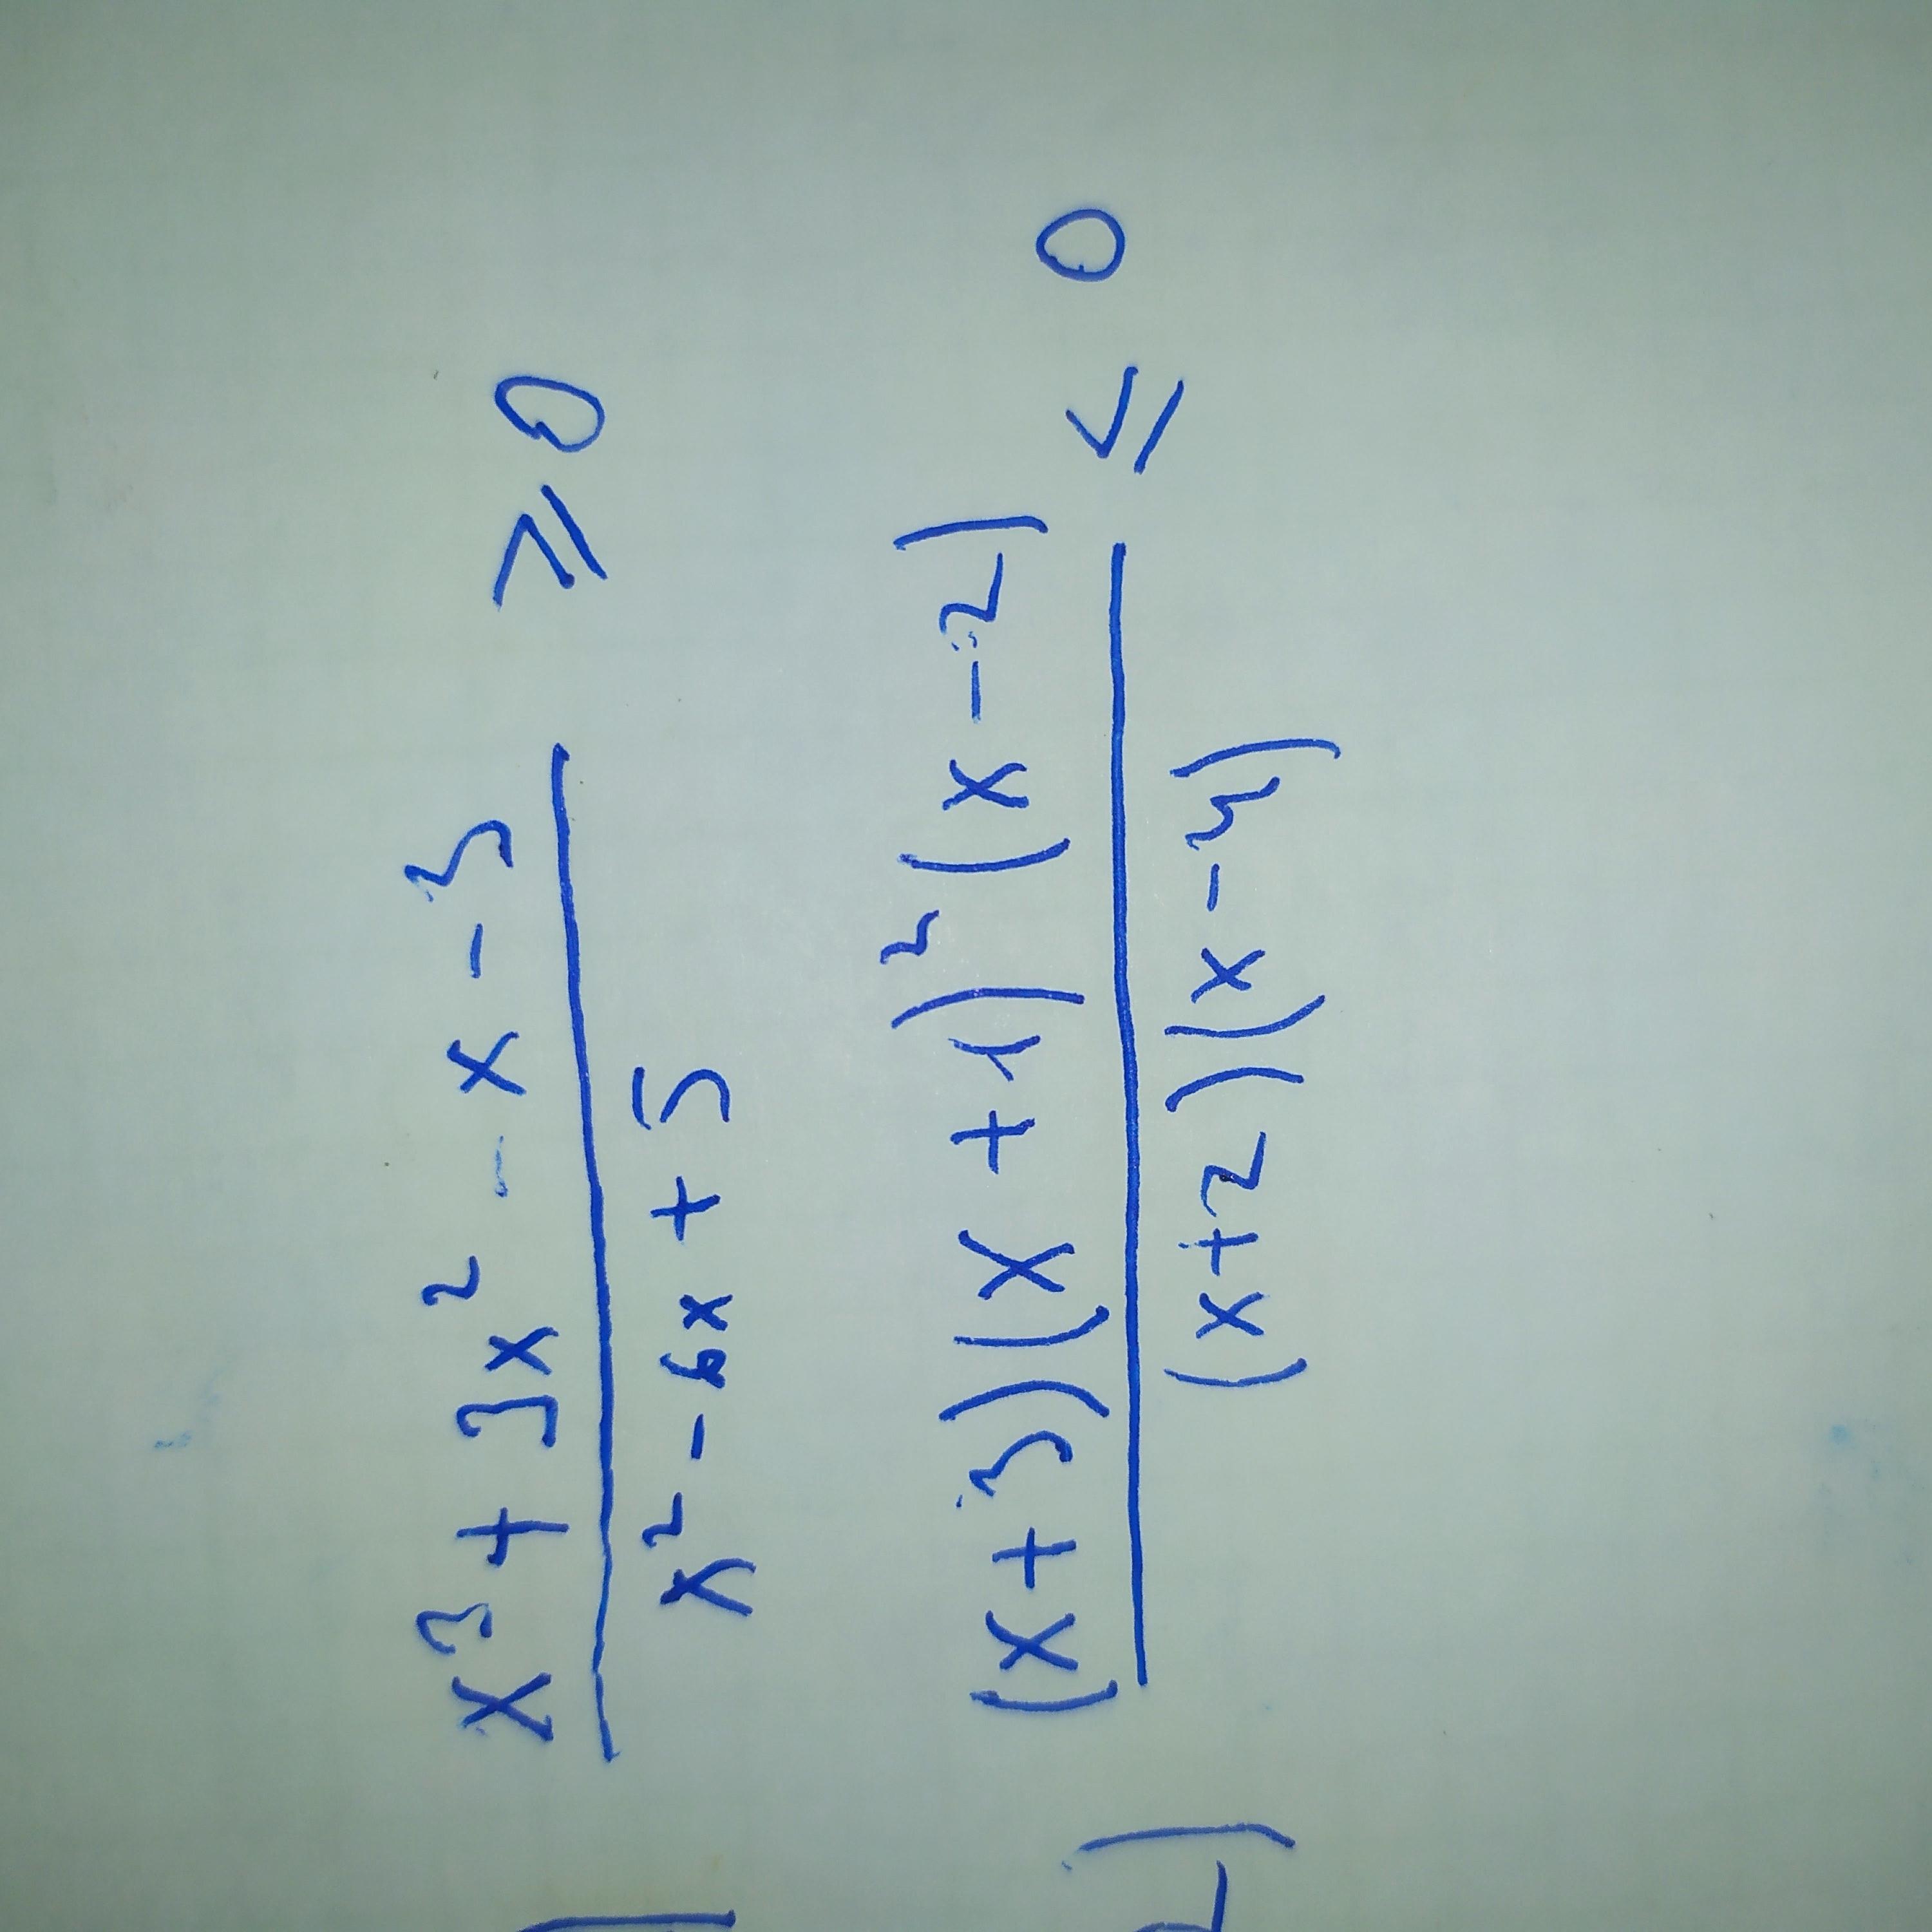 x³ + 3x² - x - 3
x² - 6x + 5
≥ 0
(x + 3)(x + 1)² (x - 2)
(x + 2)(x - 3)
≤ 0